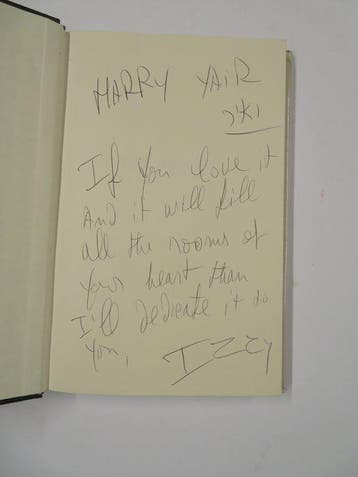 MARRY YAiR
יאיר
If you love it
And it will fill
all the rooms of
your heart than
I'll dedicate it to
you,
IZZy